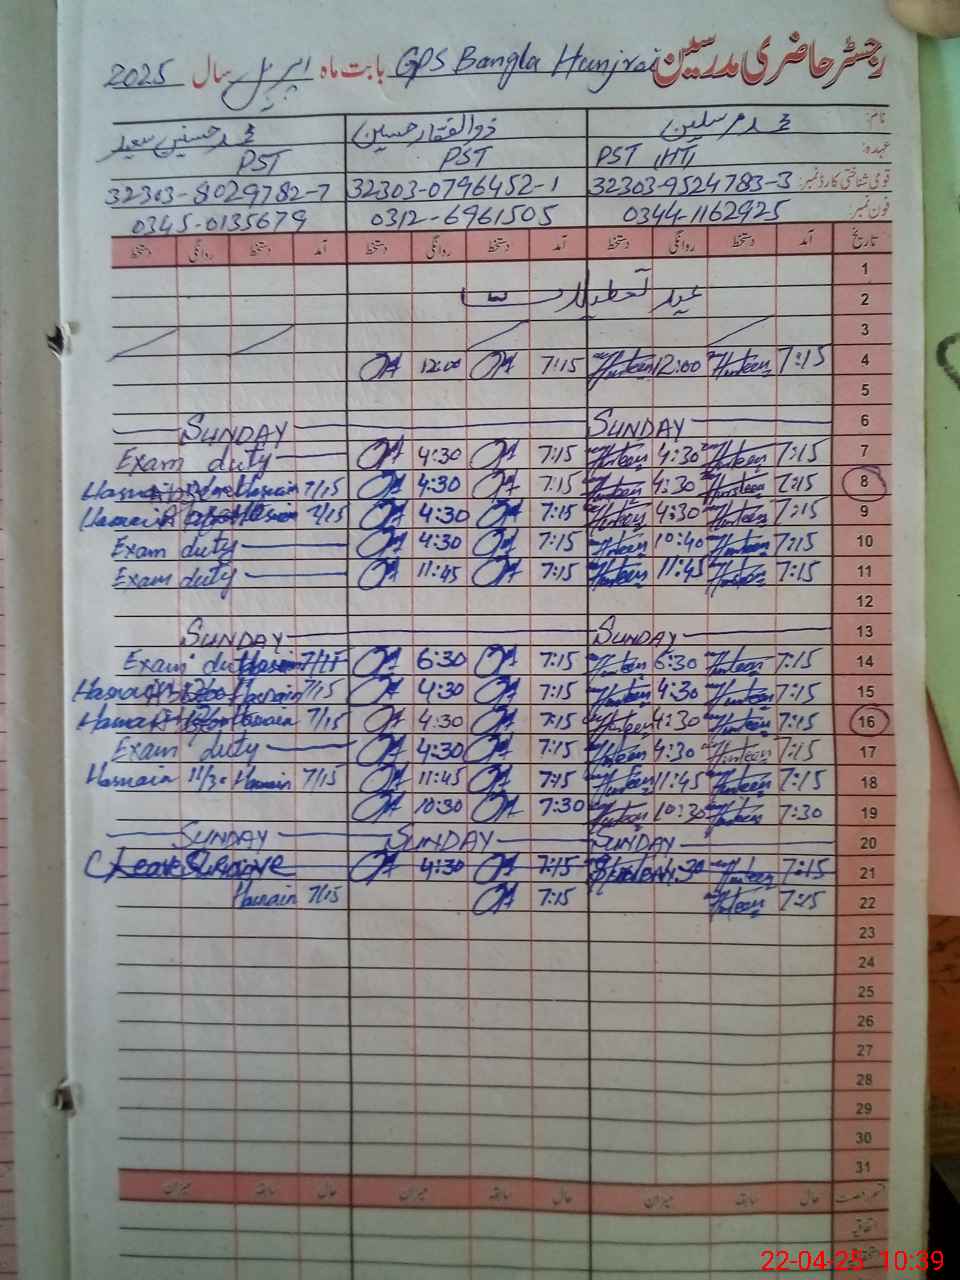 رجسٹر حاضری مدرسین GPS Bangla Hunjrai بابت ماہ اپریل سال 2025
نام: محمد مرسلین ذوالفقار حسین محمد حسنین سعید
عہدہ: PST (HT) PST PST
قومی شناختی کارڈ نمبر: 32303-9524783-3 32303-0796452-1 32303-8029782-7
فون نمبر: 0344-1162925 0312-6961505 0345-0135679
تاریخ آمد دستخط روانگی دستخط آمد دستخط روانگی دستخط آمد دستخط روانگی دستخط
1
2 عید تعطیلات
3
4 7:15 12:00 7:15 12:00
5
6 SUNDAY SUNDAY
7 7:15 4:30 7:15 4:30 Exam duty
8 7:15 4:30 7:15 4:30 7/15 Hasnain
9 7:15 4:30 7:15 4:30 7/15 Hasnain
10 7:15 10:40 7:15 4:30 Exam duty
11 7:15 11:45 7:15 11:45 Exam duty
12
13 SUNDAY SUNDAY
14 7:15 6:30 7:15 6:30 7/15 Exam duty
15 7:15 4:30 7:15 4:30 7/15 Hasnain Hasnain
16 7:15 4:30 7:15 4:30 7/15 Hasnain Hasnain
17 7:15 4:30 7:15 4:30 Exam duty
18 7:15 11:45 7:15 11:45 7/15 Hasnain 11/30 Hasnain
19 7:30 10:30 7:30 10:30
20 SUNDAY SUNDAY SUNDAY
21 7:15 4:30 7:15 4:30 Leave
22 7:15 7:15 7/15 Hasnain
23
24
25
26
27
28
29
30
31
حال سابقہ میزان حال سابقہ میزان حال سابقہ میزان
اتفاقیہ
22-04-25 10:39